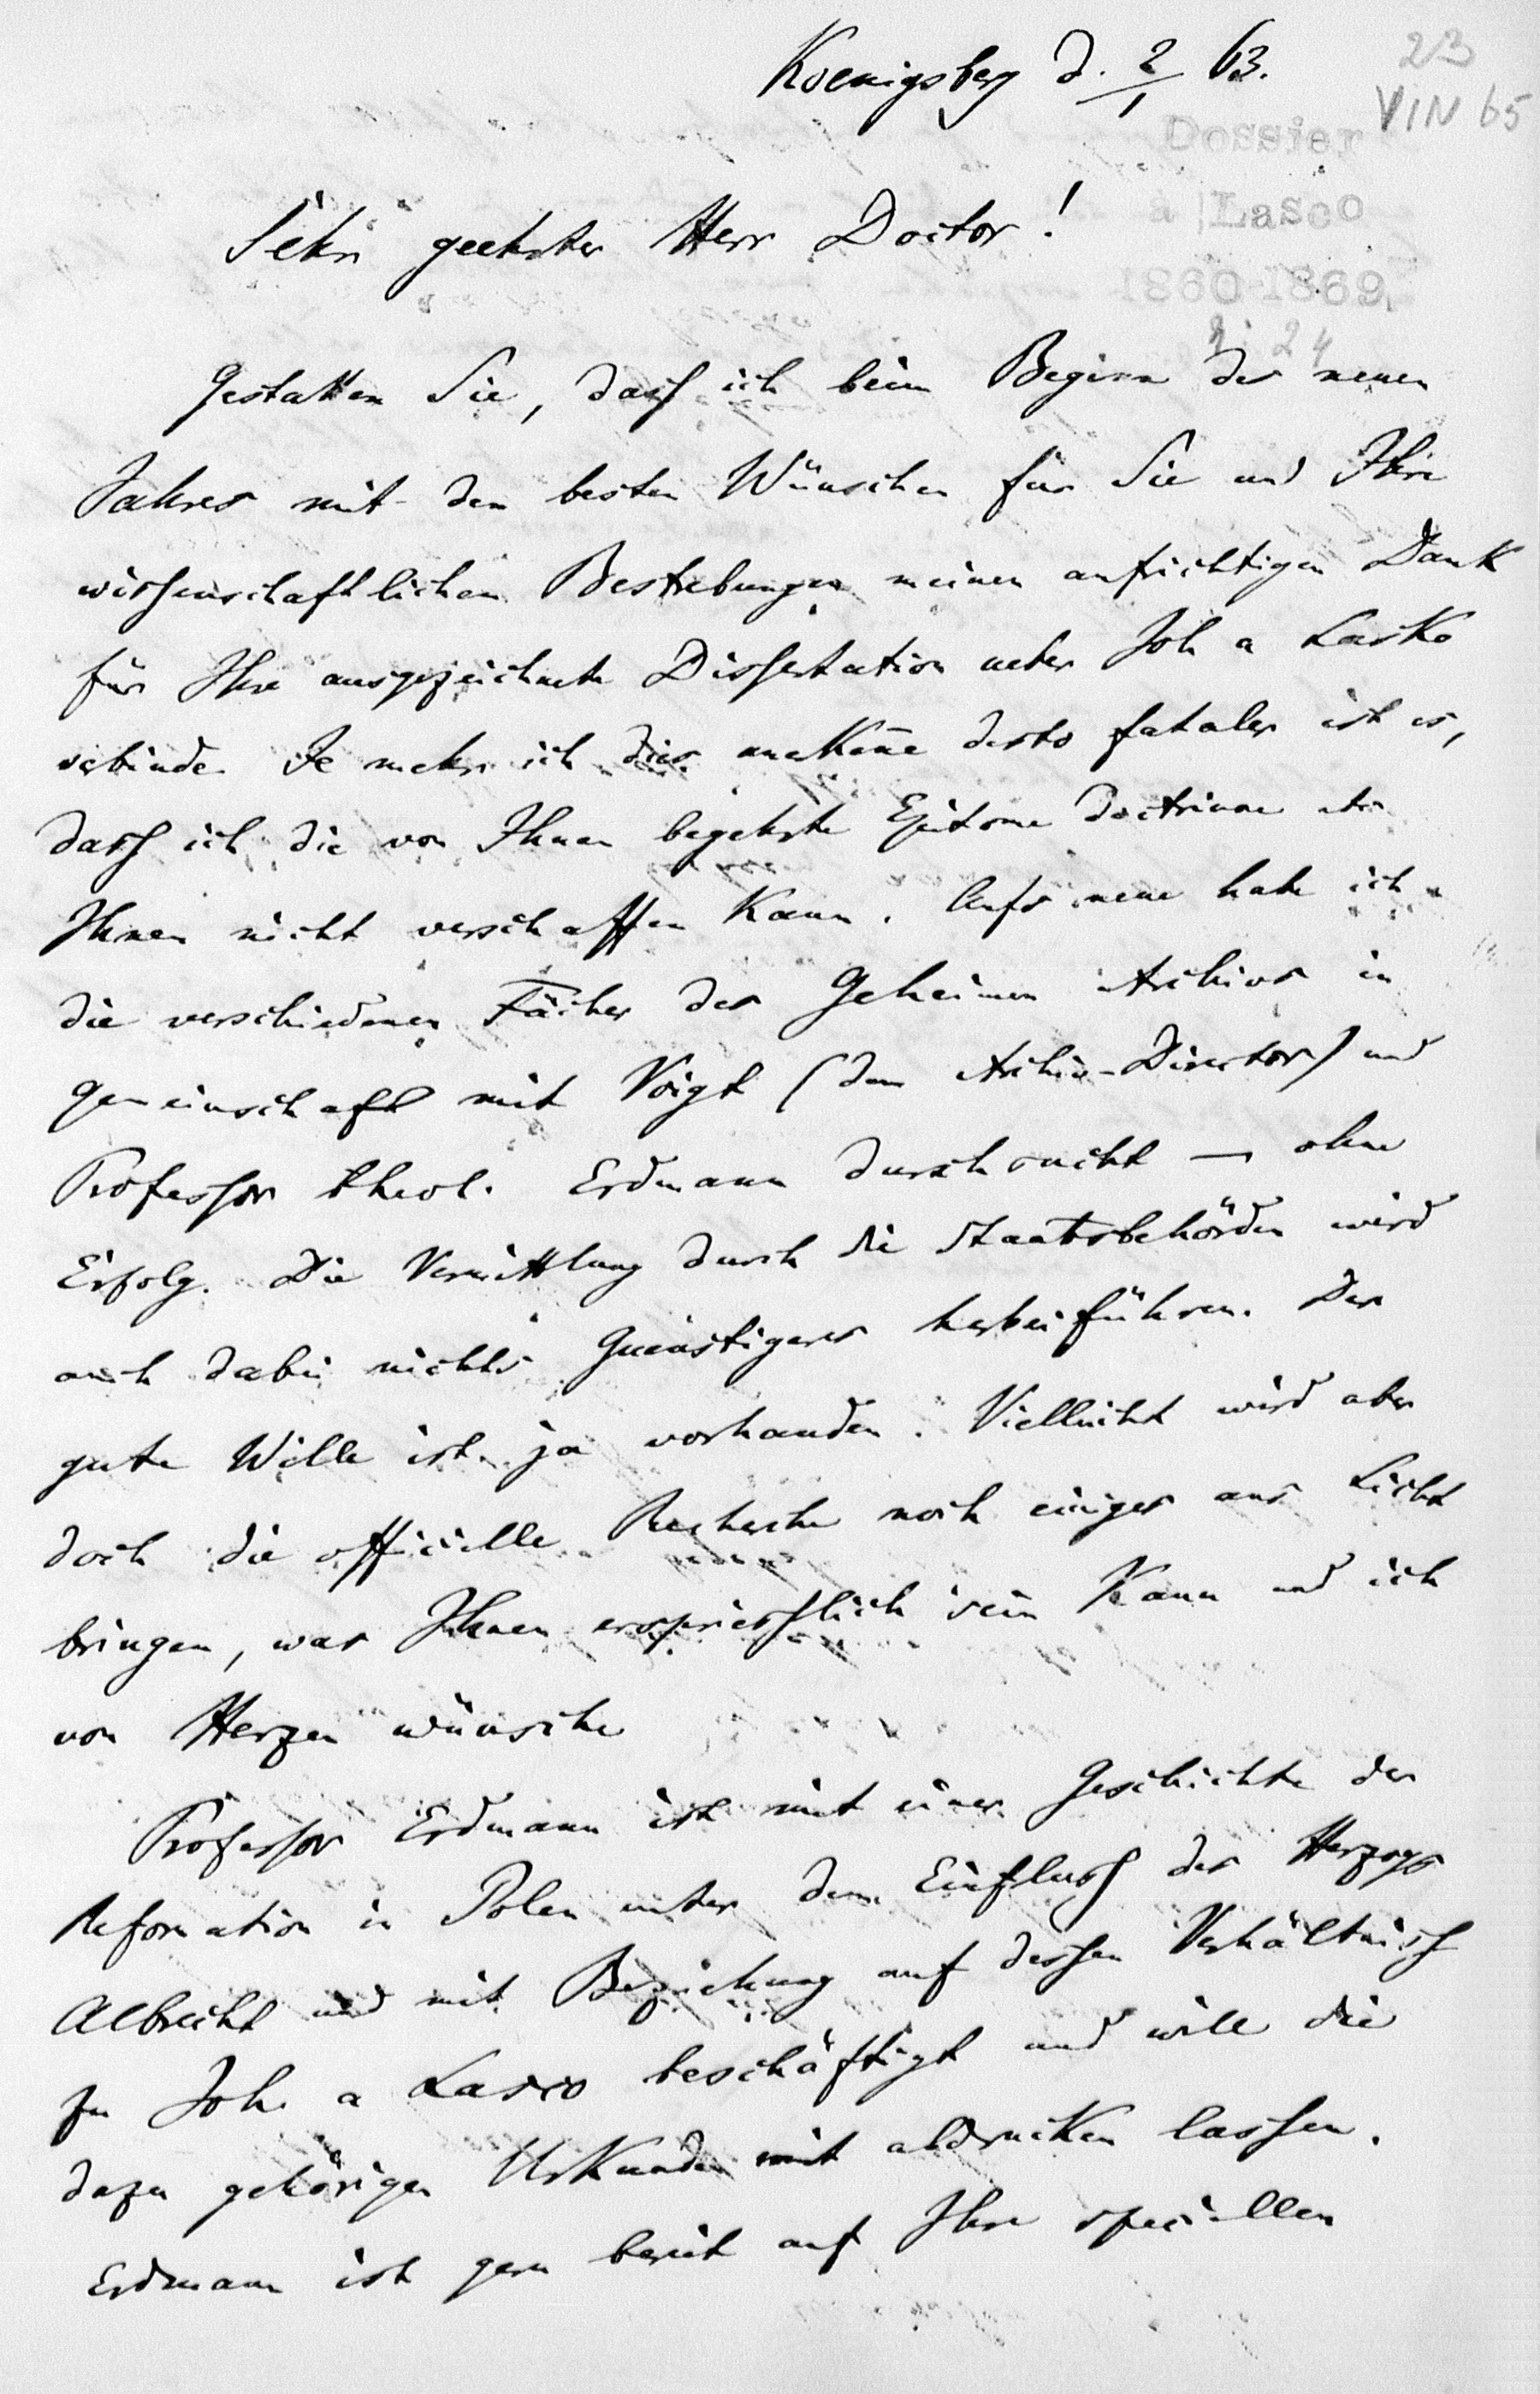 Koenigsberg d. 2/1 63.
23
VIN 65
Dossier
a Lasco
1860-1869
Sehr geehrter Herr Doctor!
Gestatten Sie, dass ich beim Beginn des neuen
Jahres mit den besten Wünschen für Sie und Ihre
wissenschaftlichen Bestrebungen meinen aufrichtigen Dank
für Ihre ausgezeichnete Dissertation ueber Joh a Lasko
verbinde. Je mehr ich dies anerkenne desto fataler ist es,
dass ich die von Ihnen begehrte Epitome doctrinae etc
Ihnen nicht verschaffen kann. Aufs neue habe ich
die verschiedenen Fächer des Geheimen Archivs in
Gemeinschaft mit Voigt (dem Archiv-Director) und
Professor theol. Erdmann durchsucht — ohne
Erfolg. Die Vermittlung durch die Staatsbehörden wird
auch dabei nichts Guenstigeres herbeiführen. Der
gute Wille ist ja vorhanden. Vielleicht wird aber
doch die officielle Recherche noch einiges ans Licht
bringen, was Ihnen erspriesslich sein kann und ich
von Herzen wünsche
Professor Erdmann ist mit einer Geschichte der
Reformation in Polen unter dem Einfluss des Herzogs
Albrecht und mit Beziehung auf dessen Verhältniss
zu Joh. a Lasco beschäftigt und will die
dazu gehörigen Urkunden mit abdrucken lassen.
Erdmann ist gern bereit auf Ihre speciellen